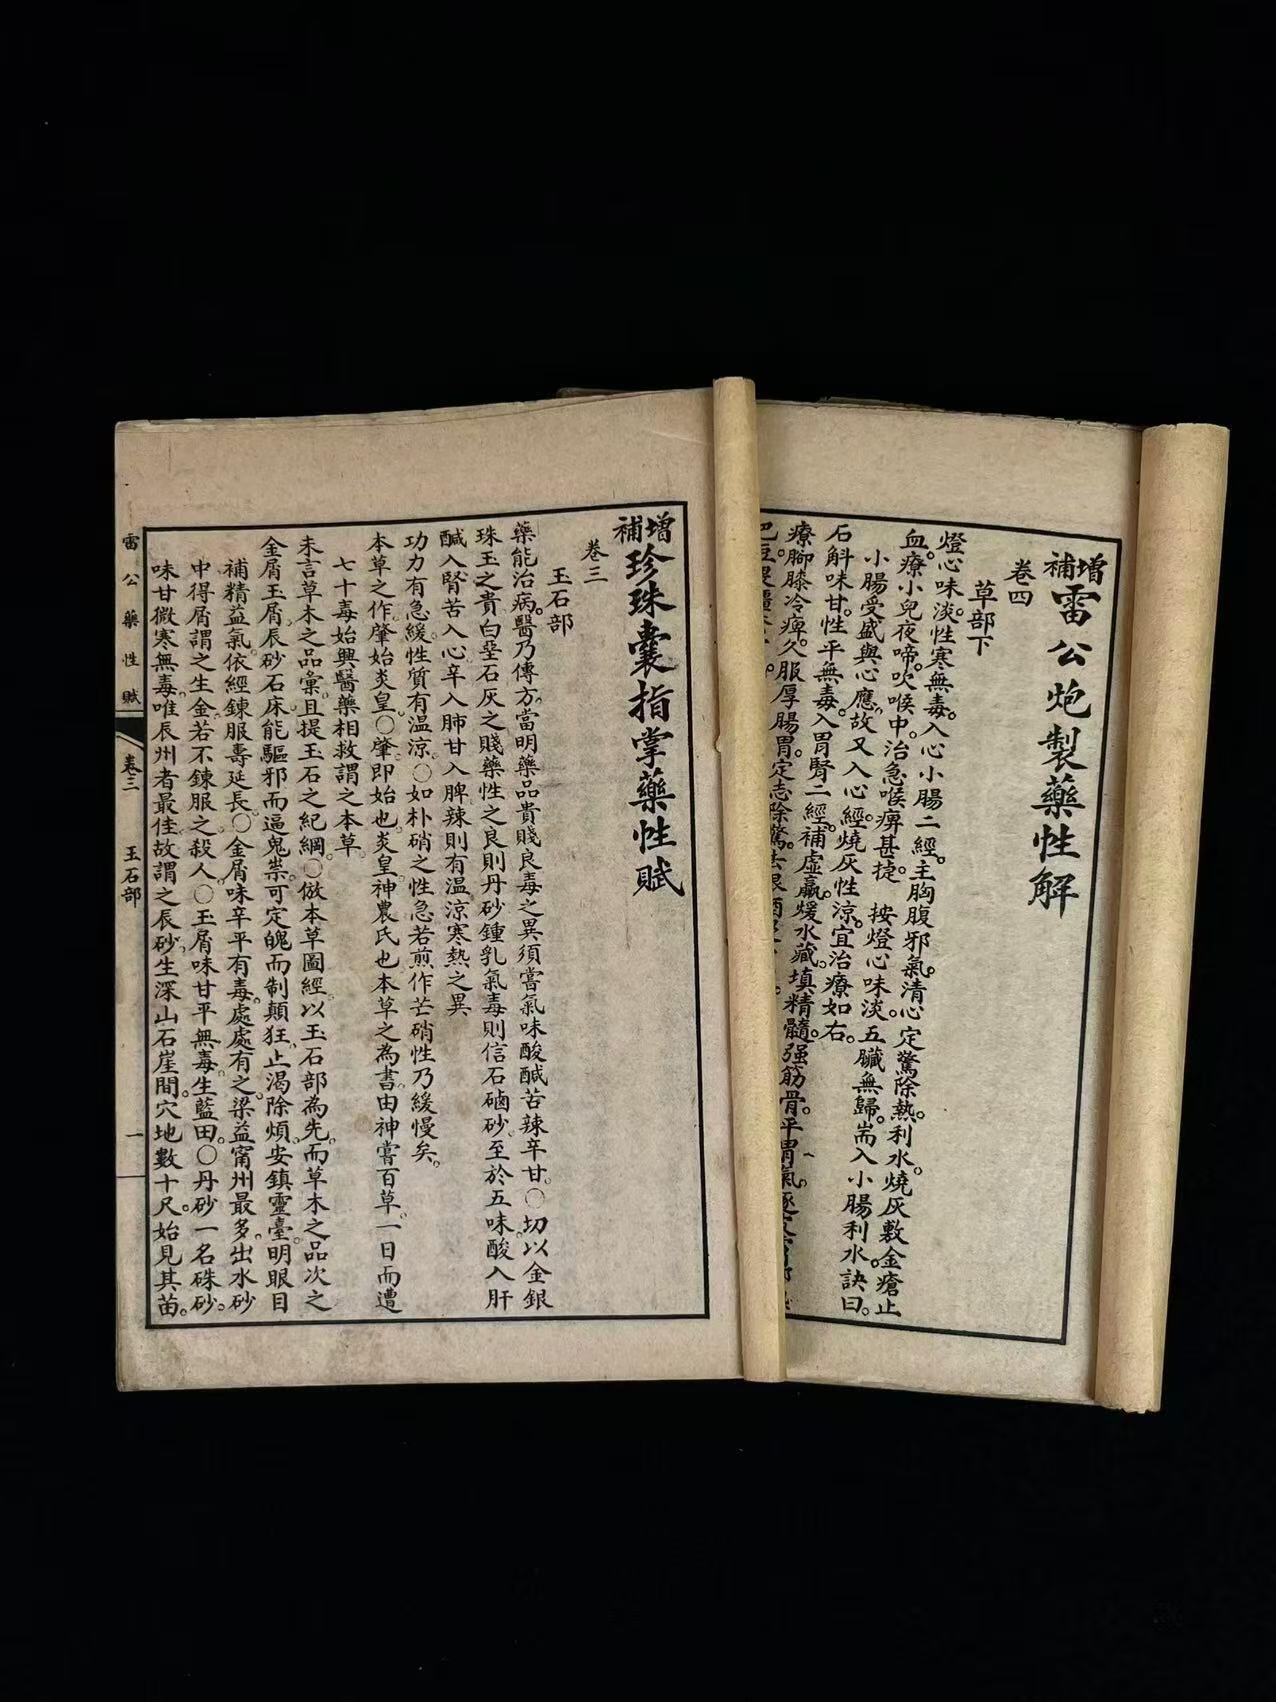 增補雷公炮製藥性解
卷四
草部下
燈心味淡。性寒無毒。入心小腸二經。主胸腹邪氣。清心定驚除熱利水。燒灰敷金瘡止
血。療小兒夜啼。吹喉中。治急喉痹甚捷。 按燈心味淡。五臟無歸。耑入小腸利水。訣曰。
小腸受盛與心應。故又入心經。燒灰性涼。宜治療如右。
石斛味甘。性平無毒。入胃腎二經。補虛羸。煖水藏。填精髓。强筋骨。平胃氣。逐
療腳膝冷痺。久服厚腸胃。定志除驚。
增補珍珠囊指掌藥性賦
卷三
玉石部
藥能治病。醫乃傳方。當明藥品貴賤良毒之異。須嘗氣味酸鹹苦辣辛甘。○切以金銀
珠玉之貴。白堊石灰之賤。藥性之良。則丹砂鍾乳。氣毒則信石硇砂。至於五味。酸入肝
鹹入腎。苦入心。辛入肺。甘入脾。辣則有温涼寒熱之異
功力有急緩。性質有温涼。○如朴硝之性急。若煎作芒硝。性乃緩慢矣。
本草之作。肇始炎皇。○肇即始也。炎皇。神農氏也。本草之為書。由神嘗百草。一日而遭
七十毒。始興醫藥相救。謂之本草。
未言草木之品彙。且提玉石之紀綱。○倣本草圖經。以玉石部為先。而草木之品次之
金屑玉屑。辰砂石床。能驅邪而逼鬼祟。可定魄而制顛狂。止渴除煩。安鎮靈臺。明眼目
補精益氣。依經鍊服。壽延長。○金屑味辛平有毒。處處有之。梁益甯州最多。出水砂
中得屑謂之生金。若不鍊服之殺人。○玉屑味甘平無毒。生藍田。○丹砂一名硃砂。
味甘微寒無毒。唯辰州者最佳。故謂之辰砂。生深山石崖間。穴地數十尺。始見其苗。
雷公藥性賦 卷三 玉石部 一